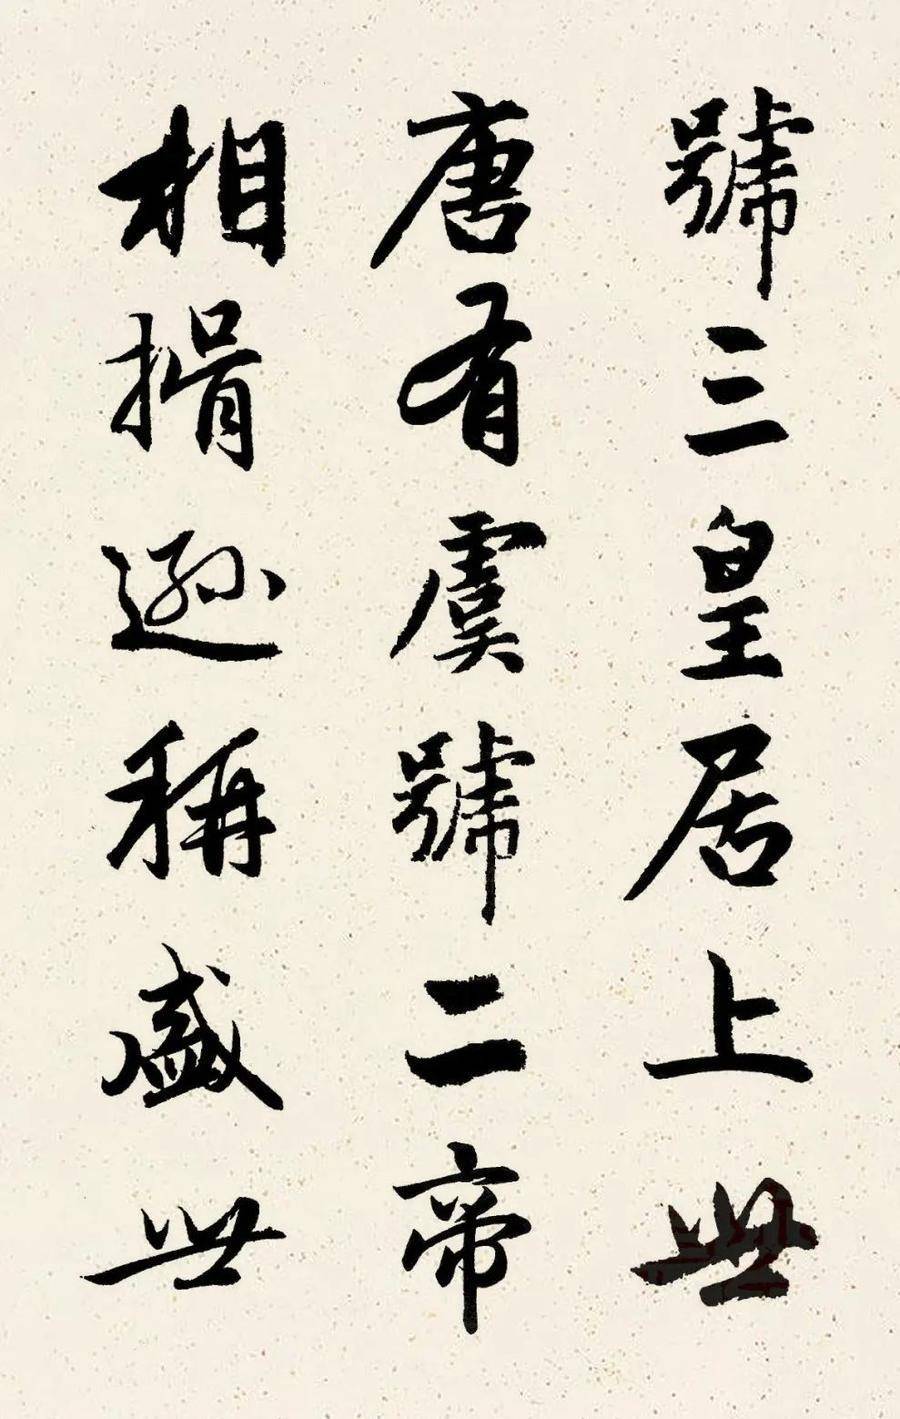 號三皇居上世
唐有虞號二帝
相揖遜稱盛世